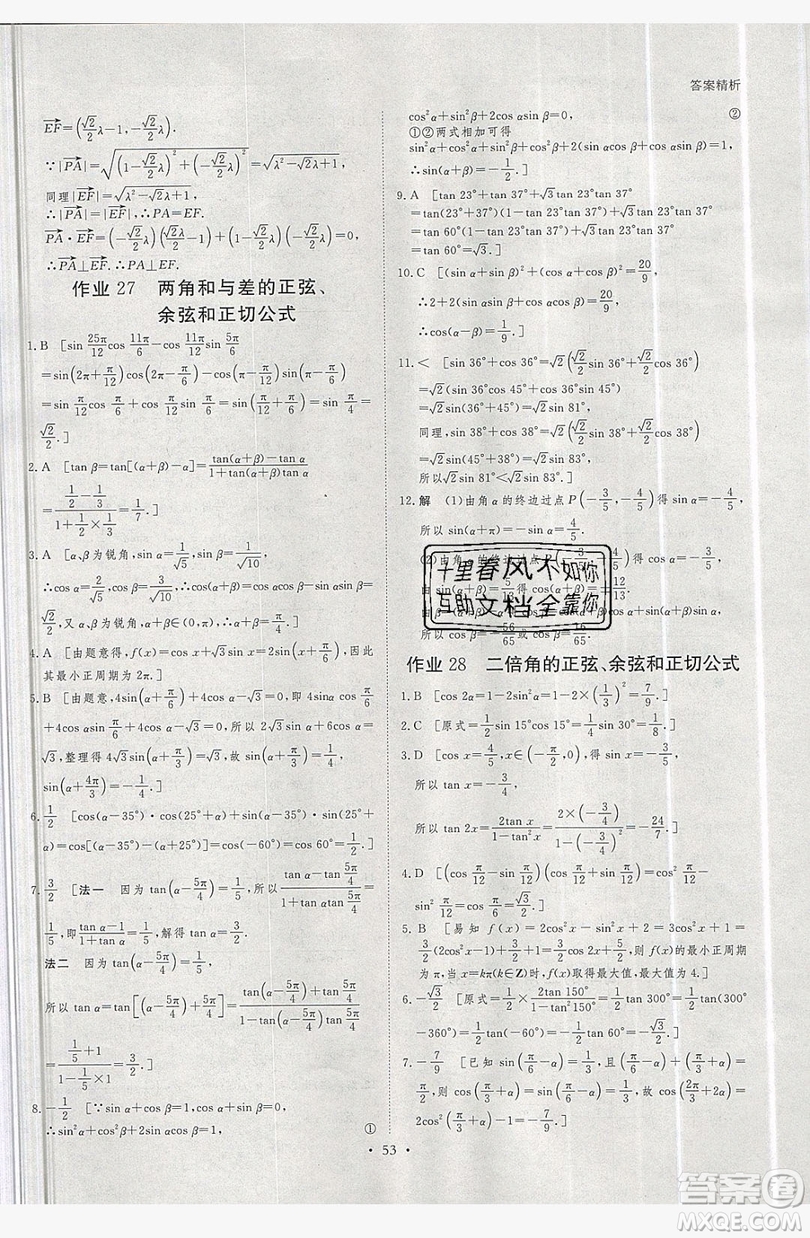 答案精析
$\overrightarrow{EF}=\left(\frac{\sqrt{2}}{2}λ-1,-\frac{\sqrt{2}}{2}λ\right)$
∵$|\overrightarrow{PA}|=\sqrt{\left(-\frac{\sqrt{2}}{2}λ\right)^2+\left(1-\frac{\sqrt{2}}{2}λ\right)^2}=\sqrt{λ^2-\sqrt{2}λ+1}$,
同理$|\overrightarrow{EF}|=\sqrt{λ^2-\sqrt{2}λ+1}$,
∴$|\overrightarrow{PA}|=|\overrightarrow{EF}|$,∴PA=EF.
$\overrightarrow{PA}·\overrightarrow{EF}=\left(-\frac{\sqrt{2}}{2}λ\right)\left(\frac{\sqrt{2}}{2}λ-1\right)+\left(1-\frac{\sqrt{2}}{2}λ\right)\left(-\frac{\sqrt{2}}{2}λ\right)=0$,
∴$\overrightarrow{PA}⊥\overrightarrow{EF}$.∴PA⊥EF.
作业 27 两角和与差的正弦、
余弦和正切公式
1.B [sin 25π/12 cos 11π/6−cos 11π/12 sin 5π/6
=sin(2π+π/12)cos(2π−π/6)−cos(π−π/12)sin(π−π/6)
=sin π/12 cos π/6+cos π/12 sin π/6=sin(π/12+π/6)=sin π/4=
√2/2.]
2.A [tan β=tan[(α+β)−α]=(tan(α+β)−tan α)/(1+tan(α+β)tan α)
=(1/2−1/3)/(1+1/2×1/3)=1/7.]
3.A [α、β为锐角,sin α=1/√5,sin β=1/√10,
∴cos α=2/√5,cos β=3/√10,∴cos(α+β)=2/√5·3/√10−1/√5·1/√10=
√2/2,又α、β为锐角,∴α+β=π/4.]
4.A [由题意得,f(x)=cos x+√3sin x=2sin(x+π/6),因此
其最小正周期为2π.]
5.B [由题意,4sin(α+π/6)+4cos α−√3=2√3sin α+2cos α
+4cos α−√3=2√3sin α+6cos α−√3=4√3sin(α+π/3)−
√3,整理得4√3sin(α+π/3)−√3=0,故sin(α+π/3)=1/4,
sin(α+4π/3)=−1/4.]
6.1/2 [cos(α−35°)·cos(25°+α)+sin(α−35°)·sin(25°+
α)=cos[(α−35°)−(25°+α)]=cos(−60°)=cos 60°=1/2.]
7.3/2 [法一 因为tan(α−5π/4)=1/5,所以(tan α−tan 5π/4)/(1+tan αtan 5π/4)=
1/5,即(tan α−1)/(1+tan α)=1/5,解得tan α=3/2.
法二 因为tan(α−5π/4)=1/5,
所以tan α=tan[(α−5π/4)+5π/4]=(tan(α−5π/4)+tan 5π/4)/(1−tan(α−5π/4)tan 5π/4)=
(1/5+1)/(1−1/5×1)=3/2.]
8.−1/2 [∵sin α+cos β=1,cos α+sin β=0,
∴sin²α+cos²β+2sin αcos β=1, ①
cos²α+sin²β+2cos αsin β=0, ②
①②两式相加可得
sin²α+cos²α+sin²β+cos²β+2(sin αcos β+cos αsin β)=1,
∴sin(α+β)=−1/2.]
9.A [tan 23°+tan 37°+√3tan 23°tan 37°
=tan(23°+37°)(1−tan 23°tan 37°)+√3tan 23°tan 37°
=tan 60°(1−tan 23°tan 37°)+√3tan 23°tan 37°=√3.]
10.C [(sin α+sin β)²+(cos α+cos β)²=20/9,
∴2+2(sin αsin β+cos αcos β)=2+2cos(α−β)=20/9,
∴cos(α−β)=1/9.]
11.< [sin 36°+cos 36°=√2(√2/2 sin 36°+√2/2 cos 36°)
=√2(sin 36°cos 45°+cos 36°sin 45°)
=√2sin(36°+45°)=√2sin 81°,
同理,sin 38°+cos 38°=√2(√2/2 sin 38°+√2/2 cos 38°)
=√2sin(38°+45°)=√2sin 83°.
所以√2sin 81°<√2sin 83°.]
12.解 (1)由角α的终边过点P(−3/5,−4/5)得sin α=−4/5,
所以sin(α+π)=−sin α=4/5.
十里春风不如你
互助文档全靠你
作业 28 二倍角的正弦、余弦和正切公式
1.B [cos 2α=1−2sin²α=1−2×(1/3)²=7/9.]
2.C [原式=1/2 sin 15°cos 15°=1/4 sin 30°=1/8.]
3.D [cos x=4/5,x∈(−π/2,0),得sin x=−3/5,
所以tan x=−3/4,
所以tan 2x=2tan x/(1−tan²x)=2×(−3/4)/(1−(−3/4)²)=−24/7.]
4.D [(cos π/12−sin π/12)(cos π/12+sin π/12)=cos²π/12−
sin²π/12=cos π/6=√3/2.]
5.B [易知f(x)=2cos²x−sin²x+2=3cos²x+1=
3/2(2cos²x−1)+3/2+1=3/2cos 2x+5/2,则f(x)的最小正周期
为π,当x=kπ(k∈Z)时,f(x)取得最大值,最大值为4.]
6.−√3/2 [原式=1/2×2tan 150°/(1−tan²150°)=1/2tan 300°=1/2tan(300°
−360°)=−1/2tan 60°=−√3/2.]
7.−7/9 [已知sin(π/6−α)=1/3,且α为锐角,故cos(2π/3+2α)=
2cos²(π/3+α)−1=2sin²(π/6−α)−1=−7/9.]
53
答案圈
MXQE.COM